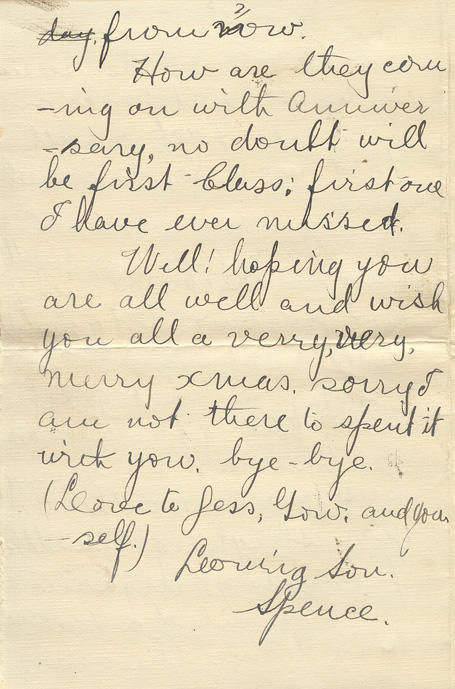 day, from now.
How are they com
-ing on with Anniver
-sary, no doubt will
be first Class; first one
I have ever missed.
Well! hoping you
are all well and wish
you all a verry, very,
merry xmas. sorry I
am not there to spent it
with you. bye-bye.
(Love to Jess, Gow. and your
-self.)
Loving Son.
Spence.